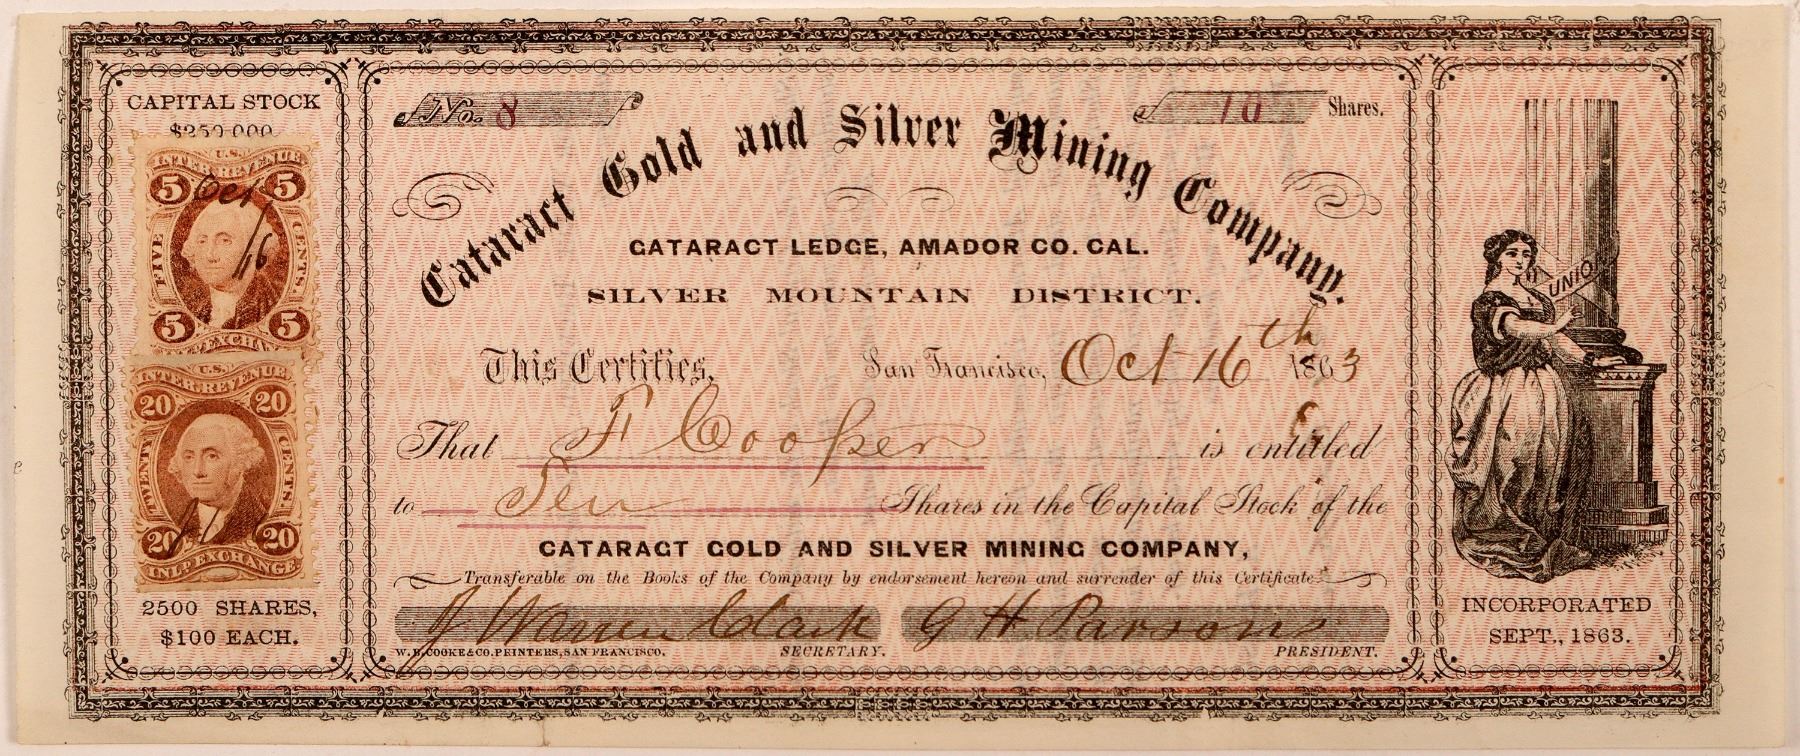 CAPITAL STOCK
$250 000
U.S.
INTER. REVENUE
5 5
Oct 16
FIVE CENTS.
5 5
U.S.
INTER. REVENUE
20 20
TWENTY CENTS.
20 20
INL'D EXCHANGE
2500 SHARES,
$100 EACH.
No. 8
10 Shares.
Cataract Gold and Silver Mining Company.
CATARACT LEDGE, AMADOR CO. CAL.
SILVER MOUNTAIN DISTRICT.
This Certifies,
San Francisco, Oct 16th 1863
That F Cooper is entitled
to Ten Shares in the Capital Stock of the
CATARACT GOLD AND SILVER MINING COMPANY,
Transferable on the Books of the Company by endorsement hereon and surrender of this Certificate
J Warren Clark G H Parsons
W.B. COOKE & CO. PRINTERS, SAN FRANCISCO.
SECRETARY.
PRESIDENT.
UNIO
INCORPORATED
SEPT., 1863.